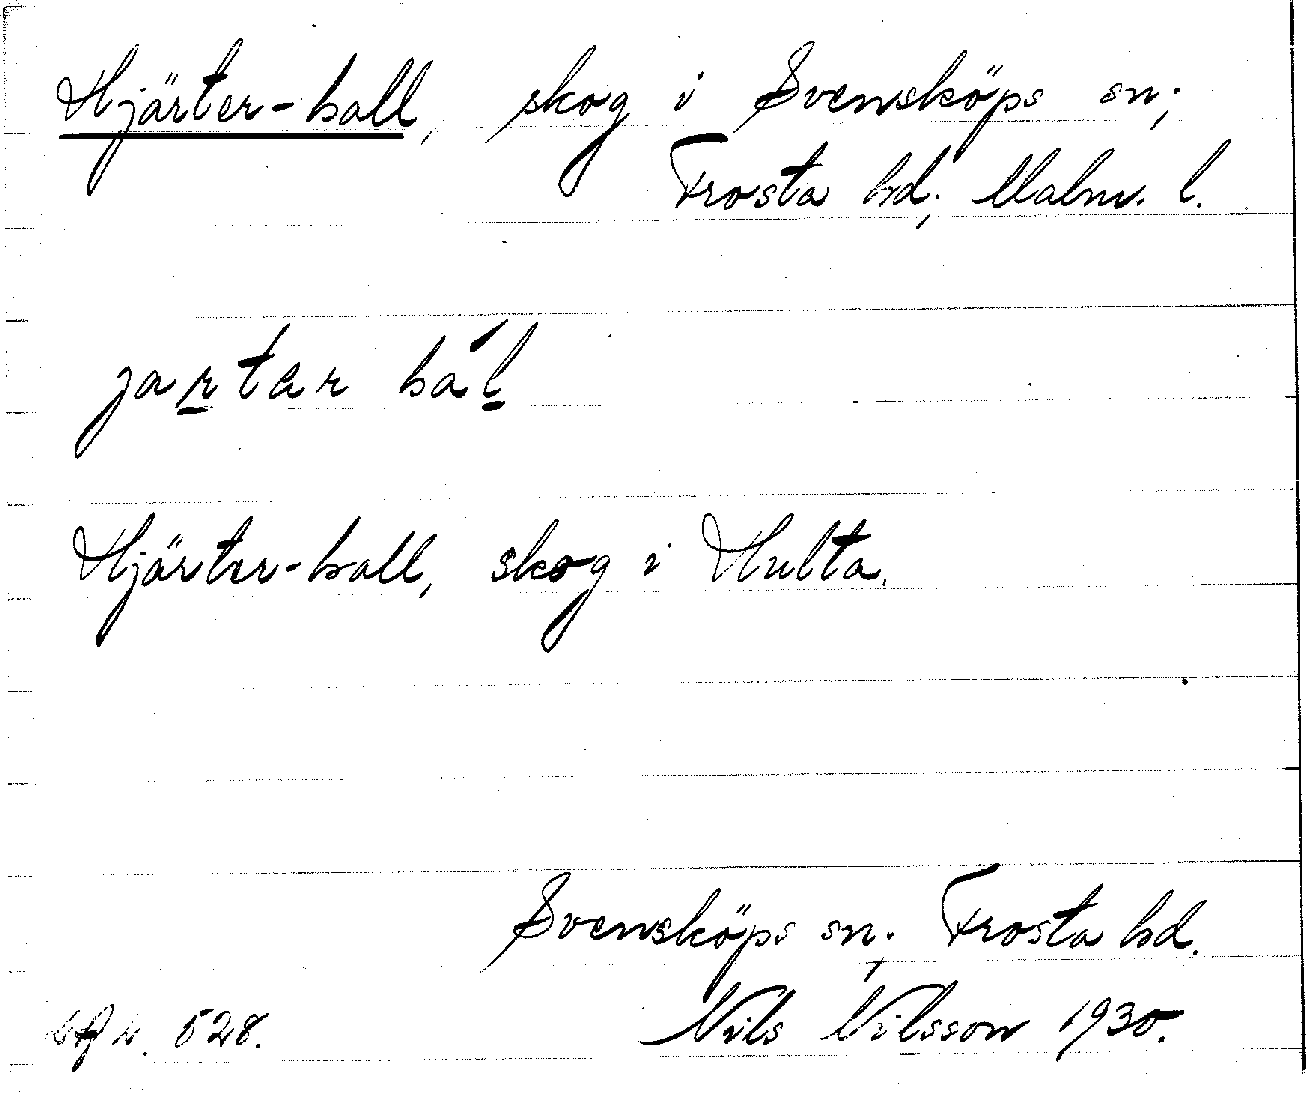 Hjärter-ball, skog i Svensköps sn;
Frosta hd; Malm. l.
jartar bál
Hjärter-ball, skog i Hulta.
Svensköps sn. Frosta hd.
528. Nils Nilsson 1930.